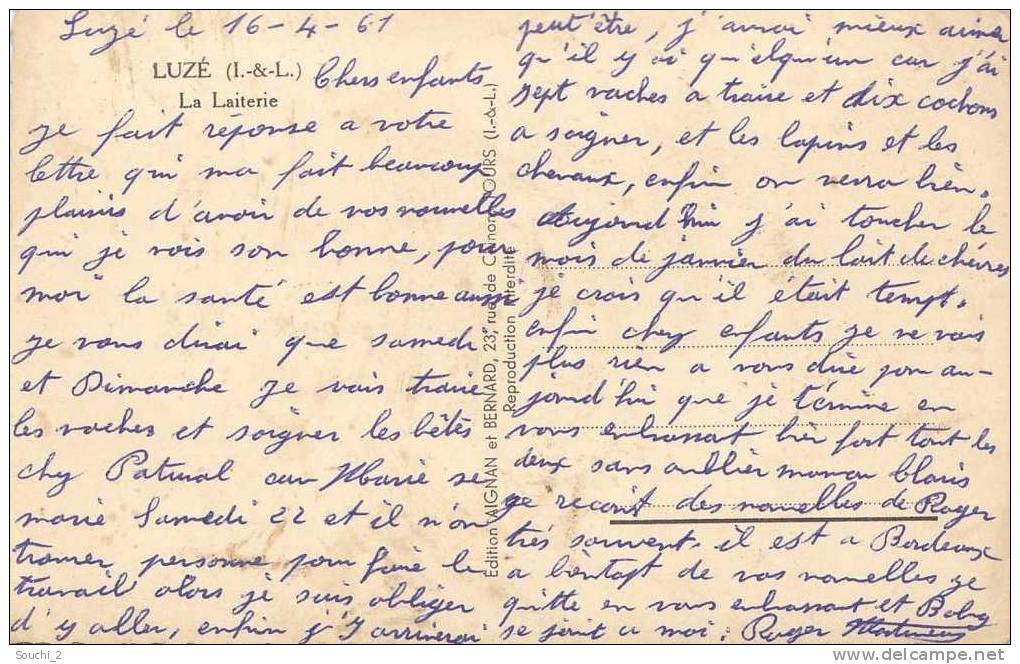 Luzé le 16-4-61
LUZÉ (I.-&-L.)
La Laiterie
Chers enfants
je fait réponse a votre
lettre qui ma fait beaucoup
plaisir d'avoir de vos nouvelles
qui je vois son bonne, pour
moi la santé est bonne aussi
je vous dirai que samedi
et Dimanche je vais traire
les vaches et soigner les bêtes
chez Patural car Marie se
marie Samedi 22 et il n'on
trouver personne pour faire le
travail alors je suis obliger
d'y aller, enfin j'y arriverai
Edition AIGNAN et BERNARD, 23, rue de Chinon, TOURS (I.-&-L.)
Reproduction interdite
peut être, j'aurai mieux aimer
qu'il y ai quelqu'un car j'ai
sept vaches a traire et dix cochons
a soigner, et les lapins et les
chevaux, enfin on verra bien.
Aujourd'hui j'ai toucher le
mois de janvier du lait de chèvres
je crois qu'il était temp.
enfin cher enfants je ne vois
plus rien a vous dire pour au-
jourd'hui que je términe en
vous enbrassant bien fort tout les
deux sans oublier maman blais
je recoit des nouvelles de Roger
très souvent. il est a Bordeaux
a bientopt de vos nouvelles je
quitte en vous enbrassant et Boby
se joint a moi. Roger
Souchi_2
www.delcampe.net